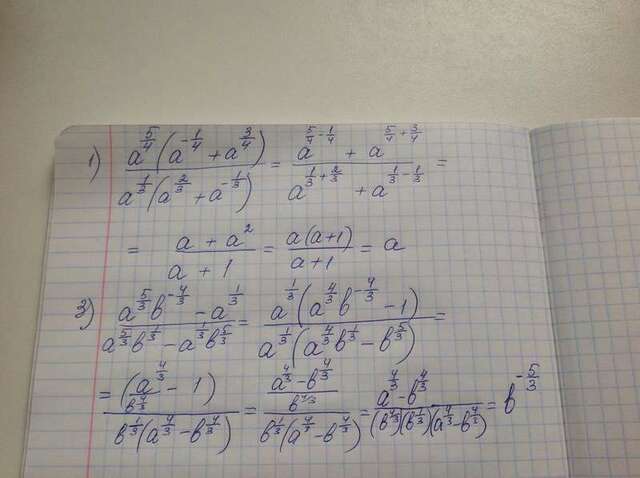 1) a^(5/4)(a^(-1/4) + a^(3/4)) / a^(1/3)(a^(2/3) + a^(-1/3)) = a^(5/4 - 1/4) + a^(5/4 + 3/4) / a^(1/3 + 2/3) + a^(1/3 - 1/3) =
= a + a^2 / a + 1 = a(a+1) / a+1 = a
3) a^(5/3) b^(-4/3) - a^(1/3) / a^(5/3) b^(1/3) - a^(1/3) b^(5/3) = a^(1/3)(a^(4/3) b^(-4/3) - 1) / a^(1/3)(a^(4/3) b^(1/3) - b^(5/3)) =
= (a^(4/3) / b^(4/3) - 1) / b^(1/3)(a^(4/3) - b^(4/3)) = a^(4/3) - b^(4/3) / b^(4/3) / b^(1/3)(a^(4/3) - b^(4/3)) = a^(4/3) - b^(4/3) / (b^(4/3))(b^(1/3))(a^(4/3) - b^(4/3)) = b^(-5/3)